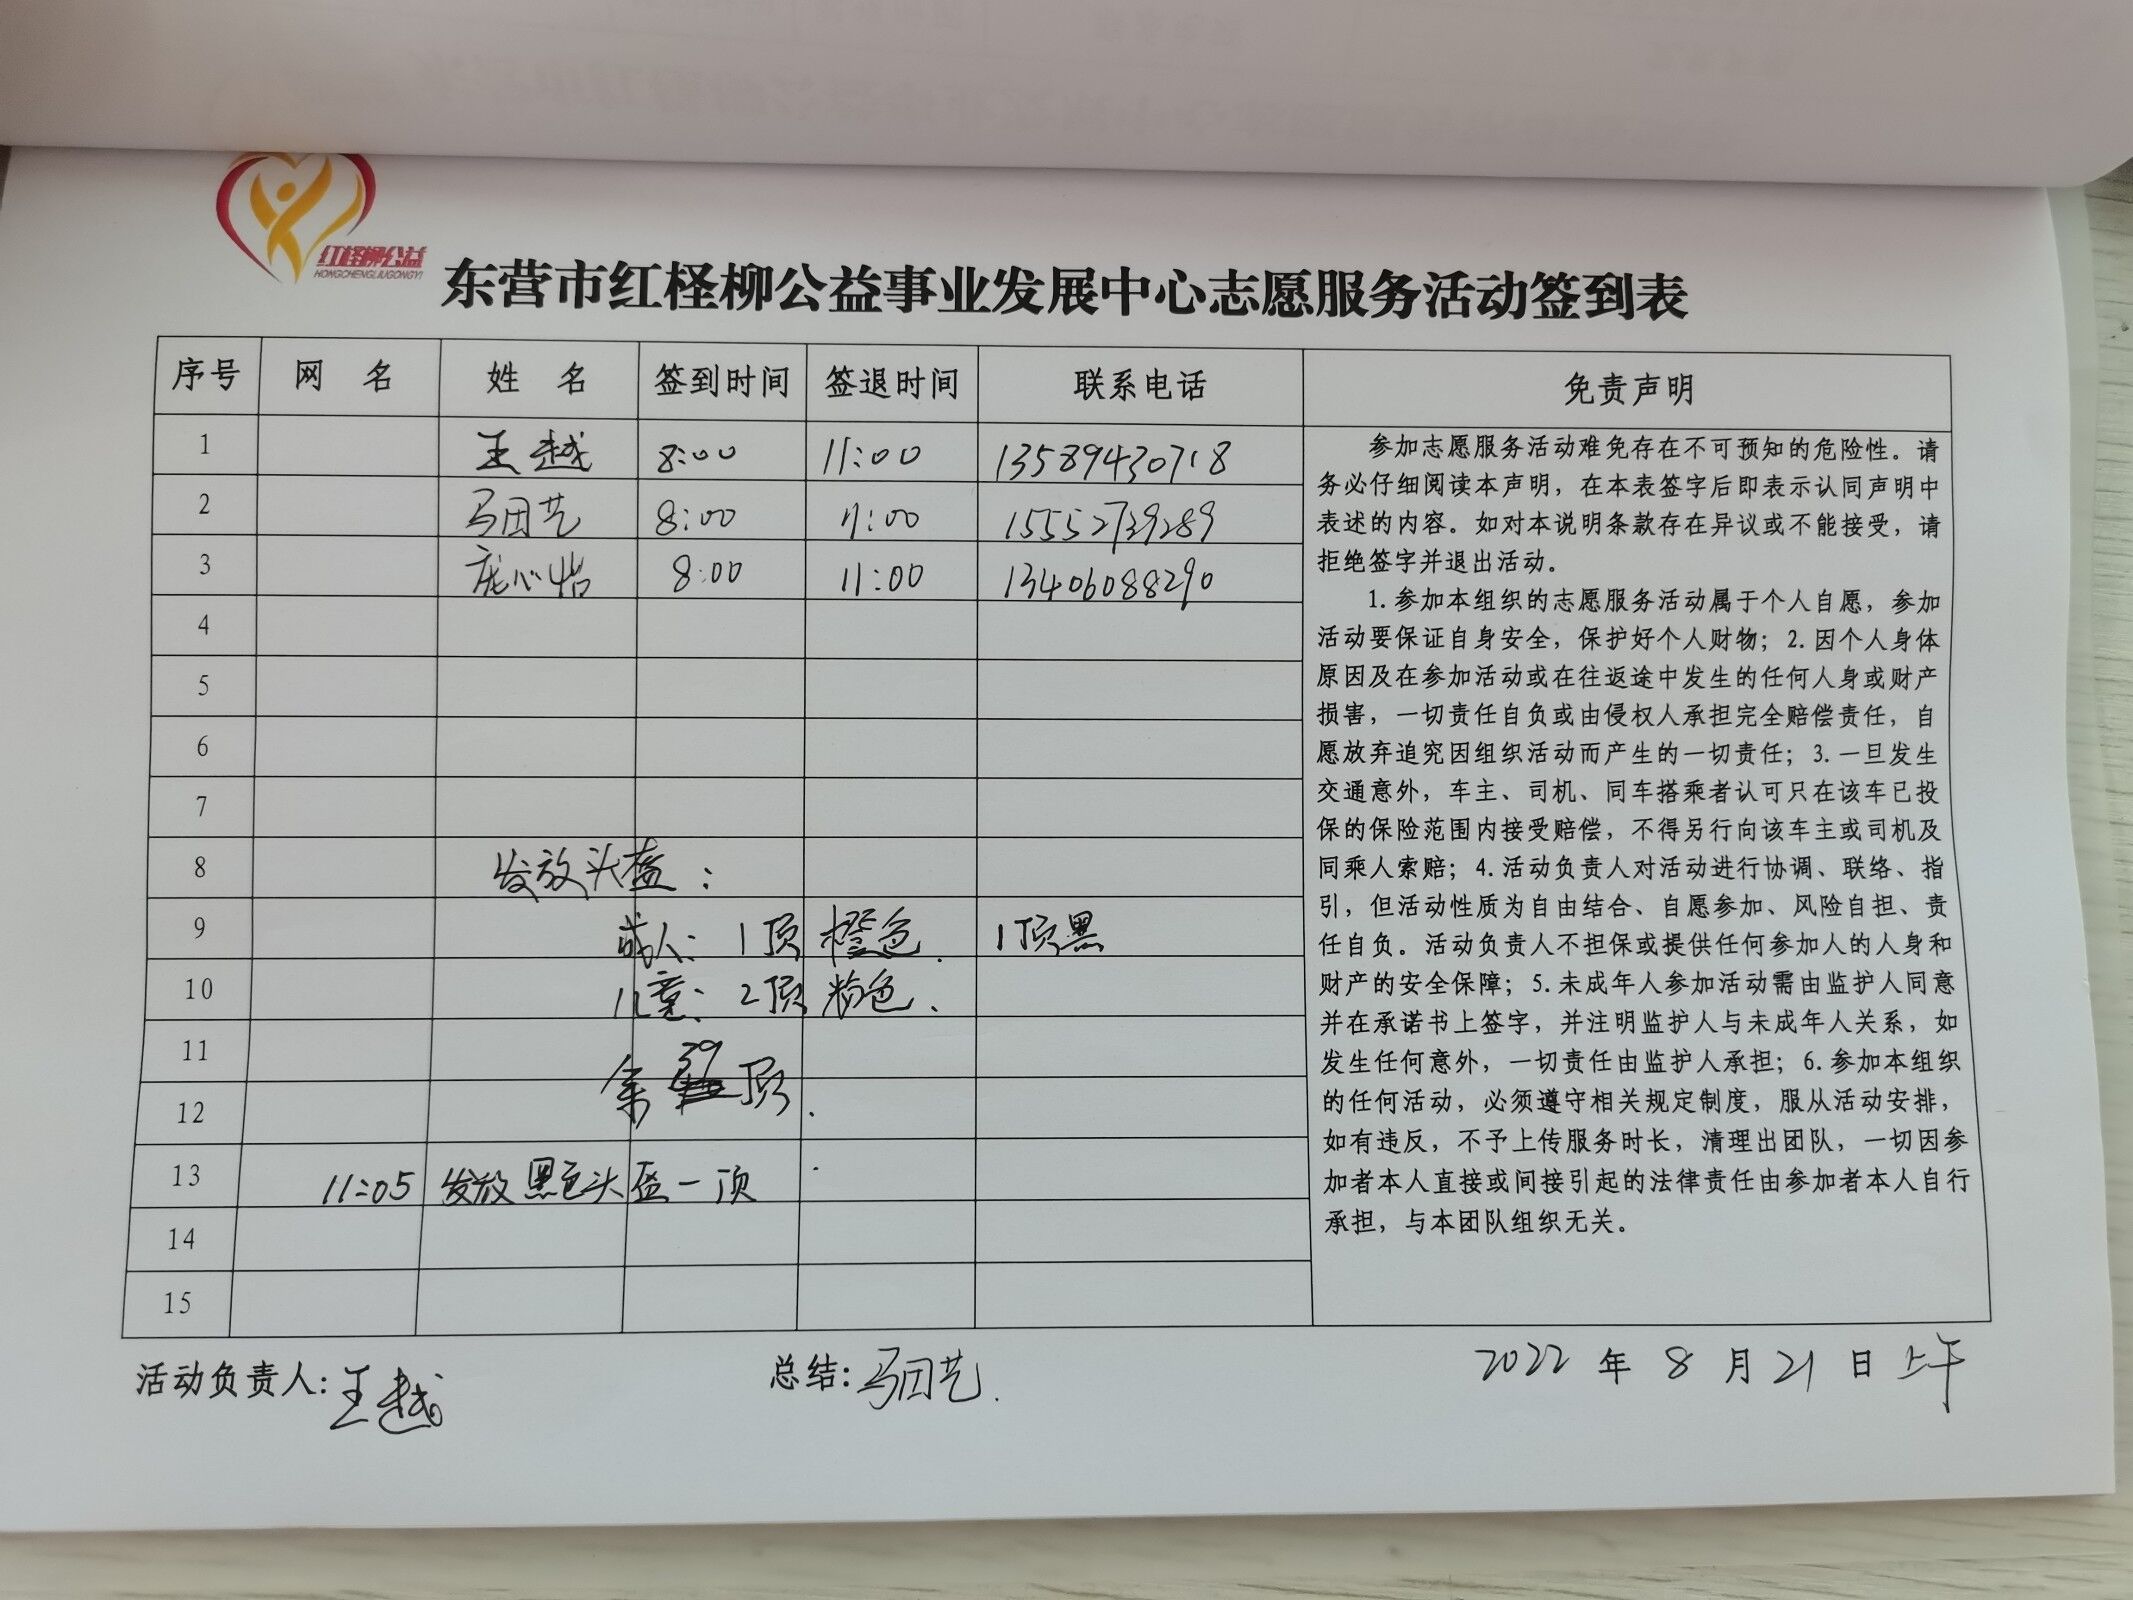 红柽柳公益
HONGCHENGLIUGONGYI
东营市红柽柳公益事业发展中心志愿服务活动签到表
序号 网 名 姓 名 签到时间 签退时间 联系电话 免责声明
1 王越 8:00 11:00 13589430718
2 马团艺 8:00 11:00 15552739289
3 庞心怡 8:00 11:00 13406088290
4
5
6
7
8 发放头盔:
9 成人: 1顶橙色. 1顶黑
10 儿童: 2顶粉色.
11
余 39 顶.
12
13 11:05 发放黑色头盔一顶
14
15
参加志愿服务活动难免存在不可预知的危险性。请
务必仔细阅读本声明，在本表签字后即表示认同声明中
表述的内容。如对本说明条款存在异议或不能接受，请
拒绝签字并退出活动。
1.参加本组织的志愿服务活动属于个人自愿，参加
活动要保证自身安全，保护好个人财物；2.因个人身体
原因及在参加活动或在往返途中发生的任何人身或财产
损害，一切责任自负或由侵权人承担完全赔偿责任，自
愿放弃追究因组织活动而产生的一切责任；3.一旦发生
交通意外，车主、司机、同车搭乘者认可只在该车已投
保的保险范围内接受赔偿，不得另行向该车主或司机及
同乘人索赔；4.活动负责人对活动进行协调、联络、指
引，但活动性质为自由结合、自愿参加、风险自担、责
任自负。活动负责人不担保或提供任何参加人的人身和
财产的安全保障；5.未成年人参加活动需由监护人同意
并在承诺书上签字，并注明监护人与未成年人关系，如
发生任何意外，一切责任由监护人承担；6.参加本组织
的任何活动，必须遵守相关规定制度，服从活动安排，
如有违反，不予上传服务时长，清理出团队，一切因参
加者本人直接或间接引起的法律责任由参加者本人自行
承担，与本团队组织无关。
活动负责人:王越 总结:马团艺. 2022 年 8 月 21 日 上午